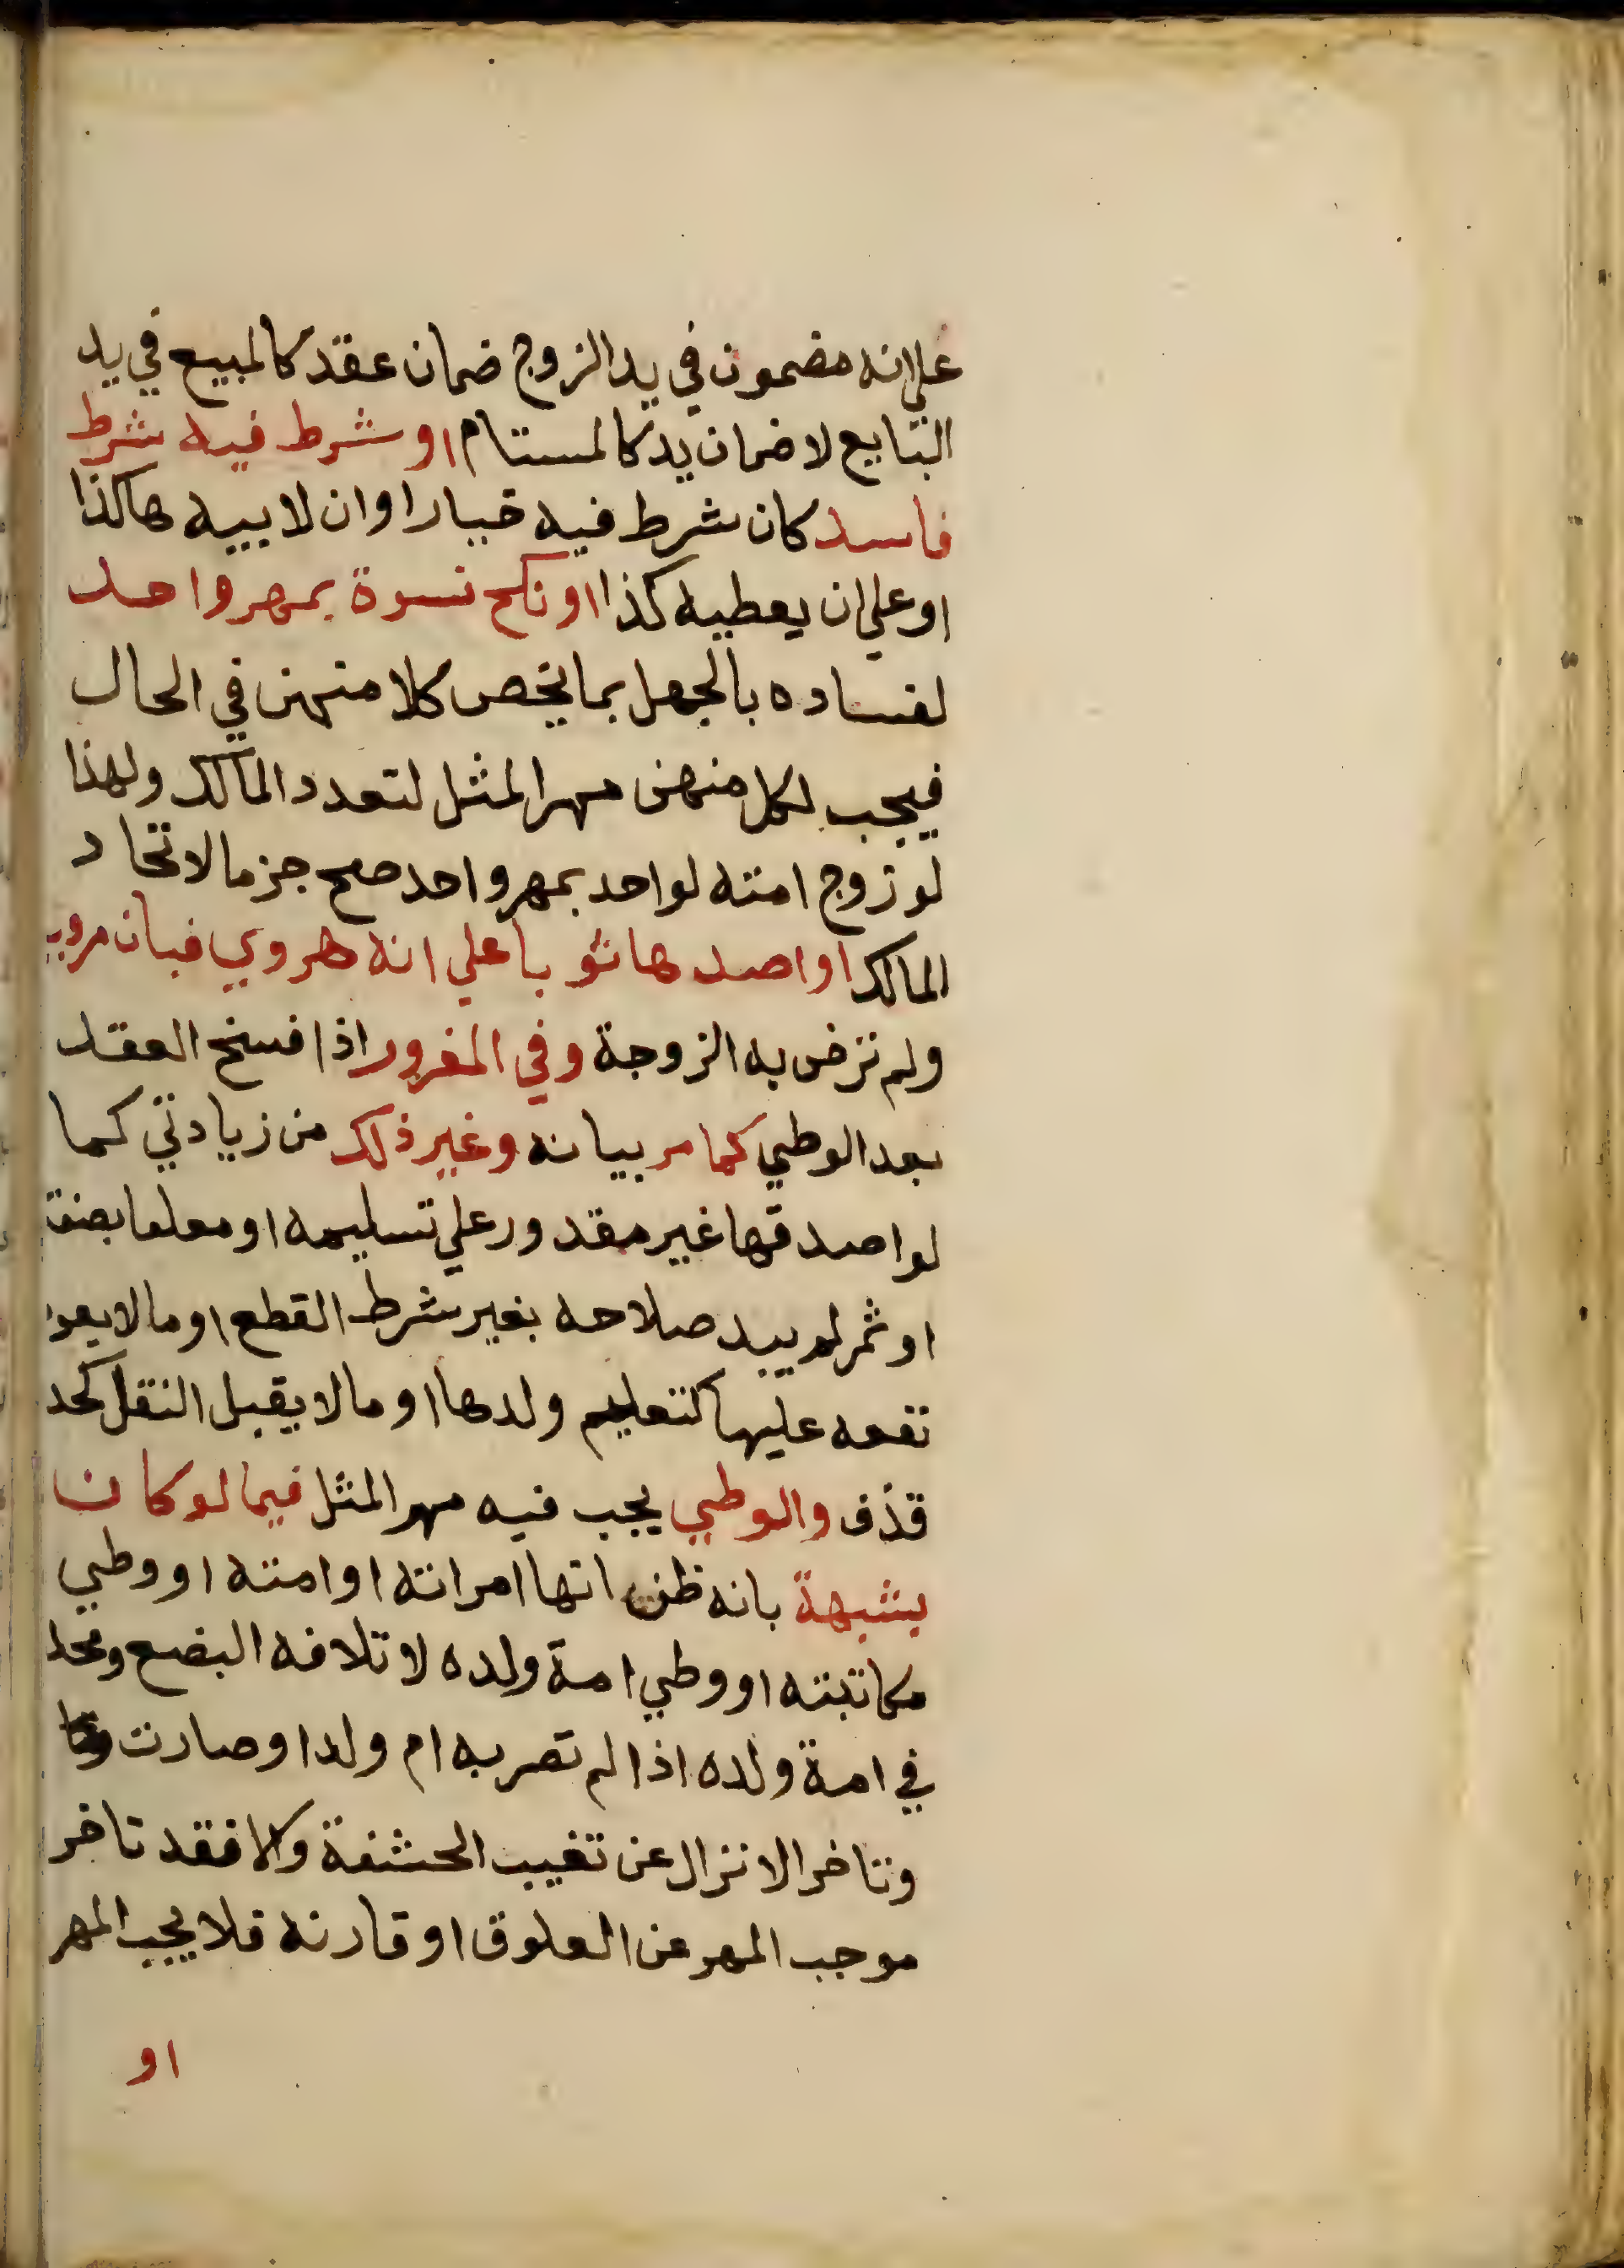 علي انه مضمون في يد الزوج ضمان عقد كالمبيع في يد
البايع لا ضمان يد كالمستام او شرط فيه شرط
فاسد كان شرط فيه خيارا وان لابيه هاكذا
او علي ان يعطيه كذا او نكح نسوة بمهر واحد
لفساده بالجهل بما يخص كلا منهن في الحال
فيجب لكل منهن مهر المثل لتعدد المالك ولهذا
لو زوج امته لواحد بمهر واحد صح جزما لاتحاد
المالك او اصدها ثوبا علي انه هروي فبان مروي
ولم ترض به الزوجة وفي المغرور اذا فسخ العقد
بعد الوطي كما مر بيانه وغير ذلك من زيادتي كما
لو اصدقها غير مقدور علي تسليمه او معلقا بصفة
او ثمر لم يبد صلاحه بغير شرط القطع او ما لا يعود
نفعه عليها كتعليم ولدها او ما لا يقبل النقل كحد
قذف والوطي يجب فيه مهر المثل فيما لو كان
بشبهة بانه ظن انها امراته او امته او وطي
مكاتبته او وطي امة ولده لاتلافه البضع ومحله
في امة ولده اذا لم تصر به ام ولد او صارت
وتاخر الانزال عن تغييب الحشفة والا فقد تاخر
موجب المهر عن العلوق او قارنه فلا يجب المهر
او